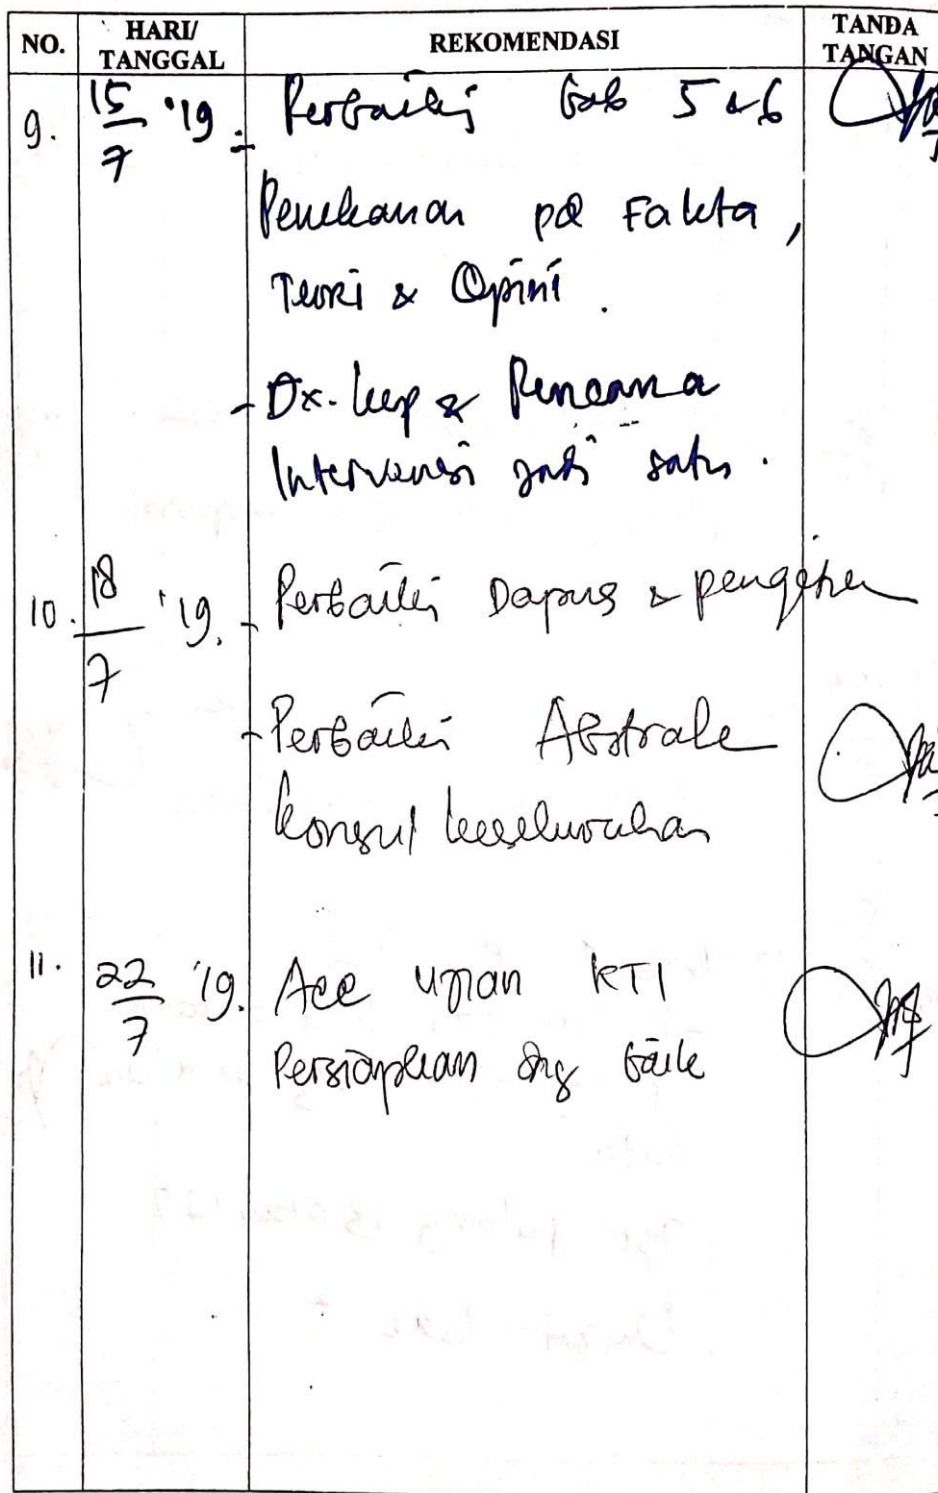 NO. HARI/ TANGGAL REKOMENDASI TANDA TANGAN
9. 15/7 '19. - Perbaiki bab 5 & 6
Penekanan pd Fakta,
Teori & Opini.
- Dx. kep & Rencana
Intervensi jadi satu.
10. 18/7 '19. - Perbaiki Dapus &
- Perbaiki Abstrak
konsul keseluruhan
11. 22/7 '19. Acc ujian KTI
Persiapkan dng baik